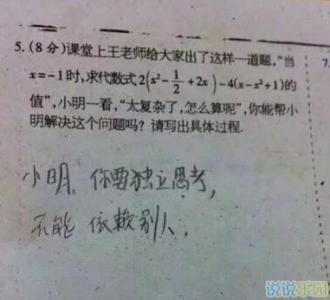 5.(8分)课堂上王老师给大家出了这样一道题,"当
x=-1时,求代数式2(x²-1/2+2x)-4(x-x²+1)的
值",小明一看,"太复杂了,怎么算呢",你能帮小
明解决这个问题吗?请写出具体过程.
小明,你要独立思考,
不能依赖别人.
7.
说说乐园